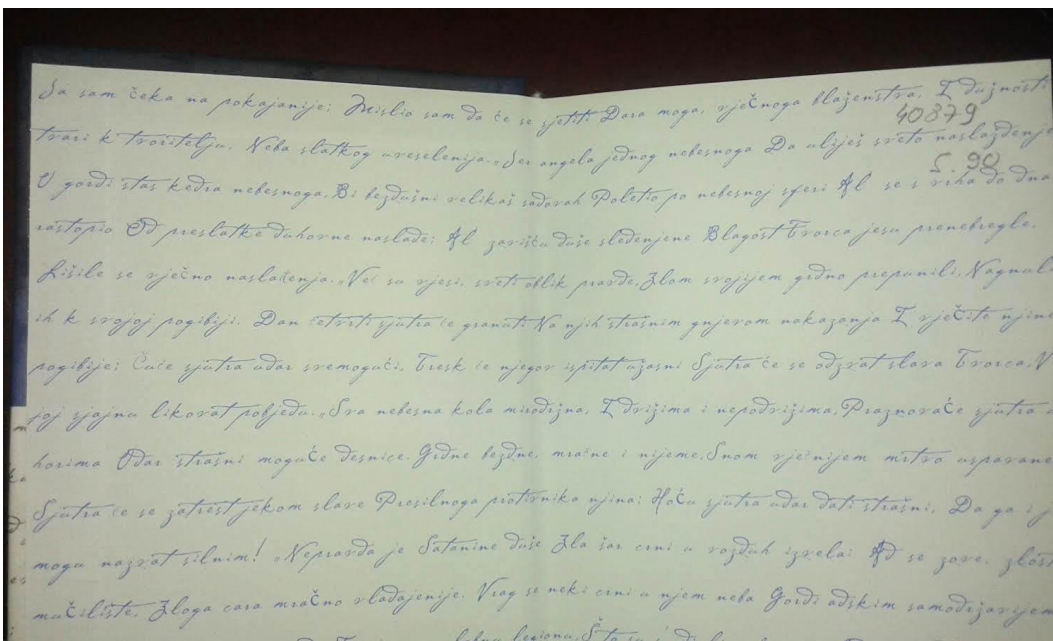 Sa sam čeka na pokajanije; Mislio sam da će se sjetiti Dara moga, vječnoga blaženstva, I dužnosti
40879
tvari k tvoritelju. Neba slatkog uveselenija. „Jer angela jednog nebesnoga Da uliješ sveto naslaždenje
S 90
U gordi stas kedra nebesnoga, Bi bezdušni velikaš sadovah Poletio po nebesnoj sferi Al se s vrha do dna
rastopio Od preslatke duhovne naslade; Al zarišta duše sleđenjene Blagost Tvorca jesu prenebregle,
Lišile se vječno naslaženja. „Već su vjesi, sveti oblik pravde, Zlom svojijem grdno prepunili, Nagnuli
ih k svojoj pogibiji. Dan četvrti sjutra će granuti Na njih strašnim gnjevom nakazanja I vječite njine
pogibije; Čuće sjutra udar svemogući, Tresk će njegov ispitat užasni Sjutra će se odzvat slava Tvorca, V
joj sjajnu likovat pobjedu. „Sva nebesna kola mirodržna, I dvižima i nepodvižima, Praznovaće sjutra u
horima Udar strašni moguće desnice. Grdne bezdne, mračne i nijeme, Snom vječnijem mrtvo uspavane
Sjutra će se zatrest jekom slave Presilnoga protivnika njina; Hoću sjutra udar dati strašni, Da ga i j
mogu nazvat silnim! „Nepravda je Satanine duše Zla šar crni u vozduh izvela; Ad se zove, zlosti
mučilište, Zloga cara mračno vlađajenije. Vrag se neki crni u njem neba Gordi adskim samodržavijem